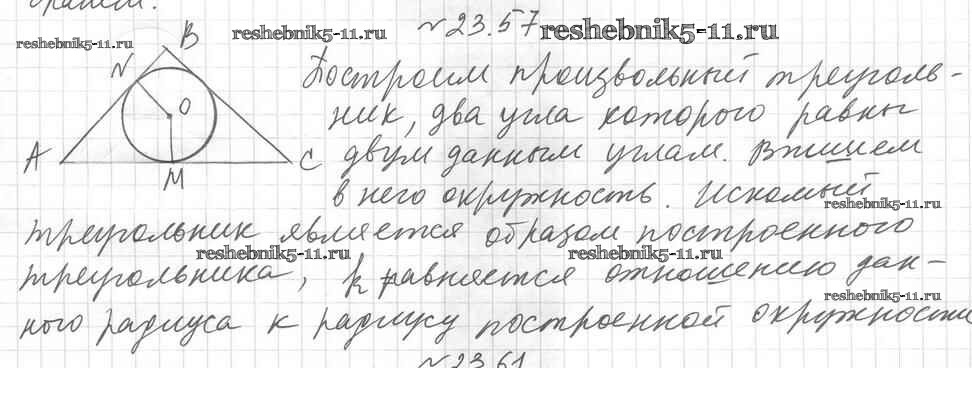 №23.57
reshebnik5-11.ru
reshebnik5-11.ru
reshebnik5-11.ru
B
N
O
A
C
M
Построим произвольный треуголь-
ник, два угла которого равны
двум данным углам. Впишием
в него окружность. Искомый
reshebnik5-11.ru
треугольник является образом построенного
reshebnik5-11.ru
reshebnik5-11.ru
треугольника, k равняется отношению дан-
reshebnik5-11.ru
ного радиуса к радиусу построенной окружности
№23.61